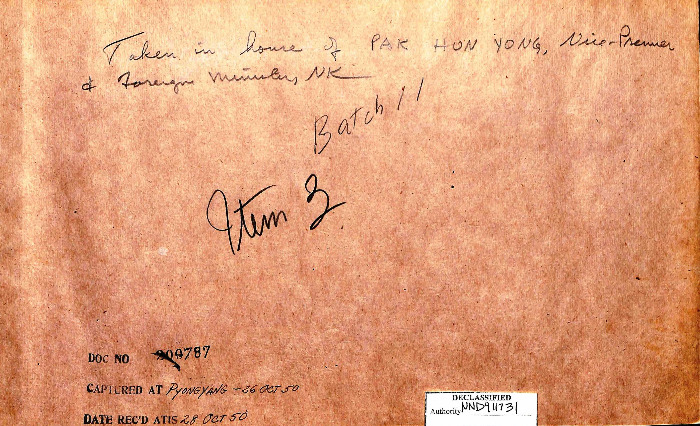 Taken in house of PAK HUN YONG, Vice-Premier
& Foreign Minister, NK
Batch 11
Item 3
DOC NO 200787
CAPTURED AT PYONGYANG - 26 OCT 50
DATE REC'D ATIS 28 OCT 50
DECLASSIFIED
Authority NND911731